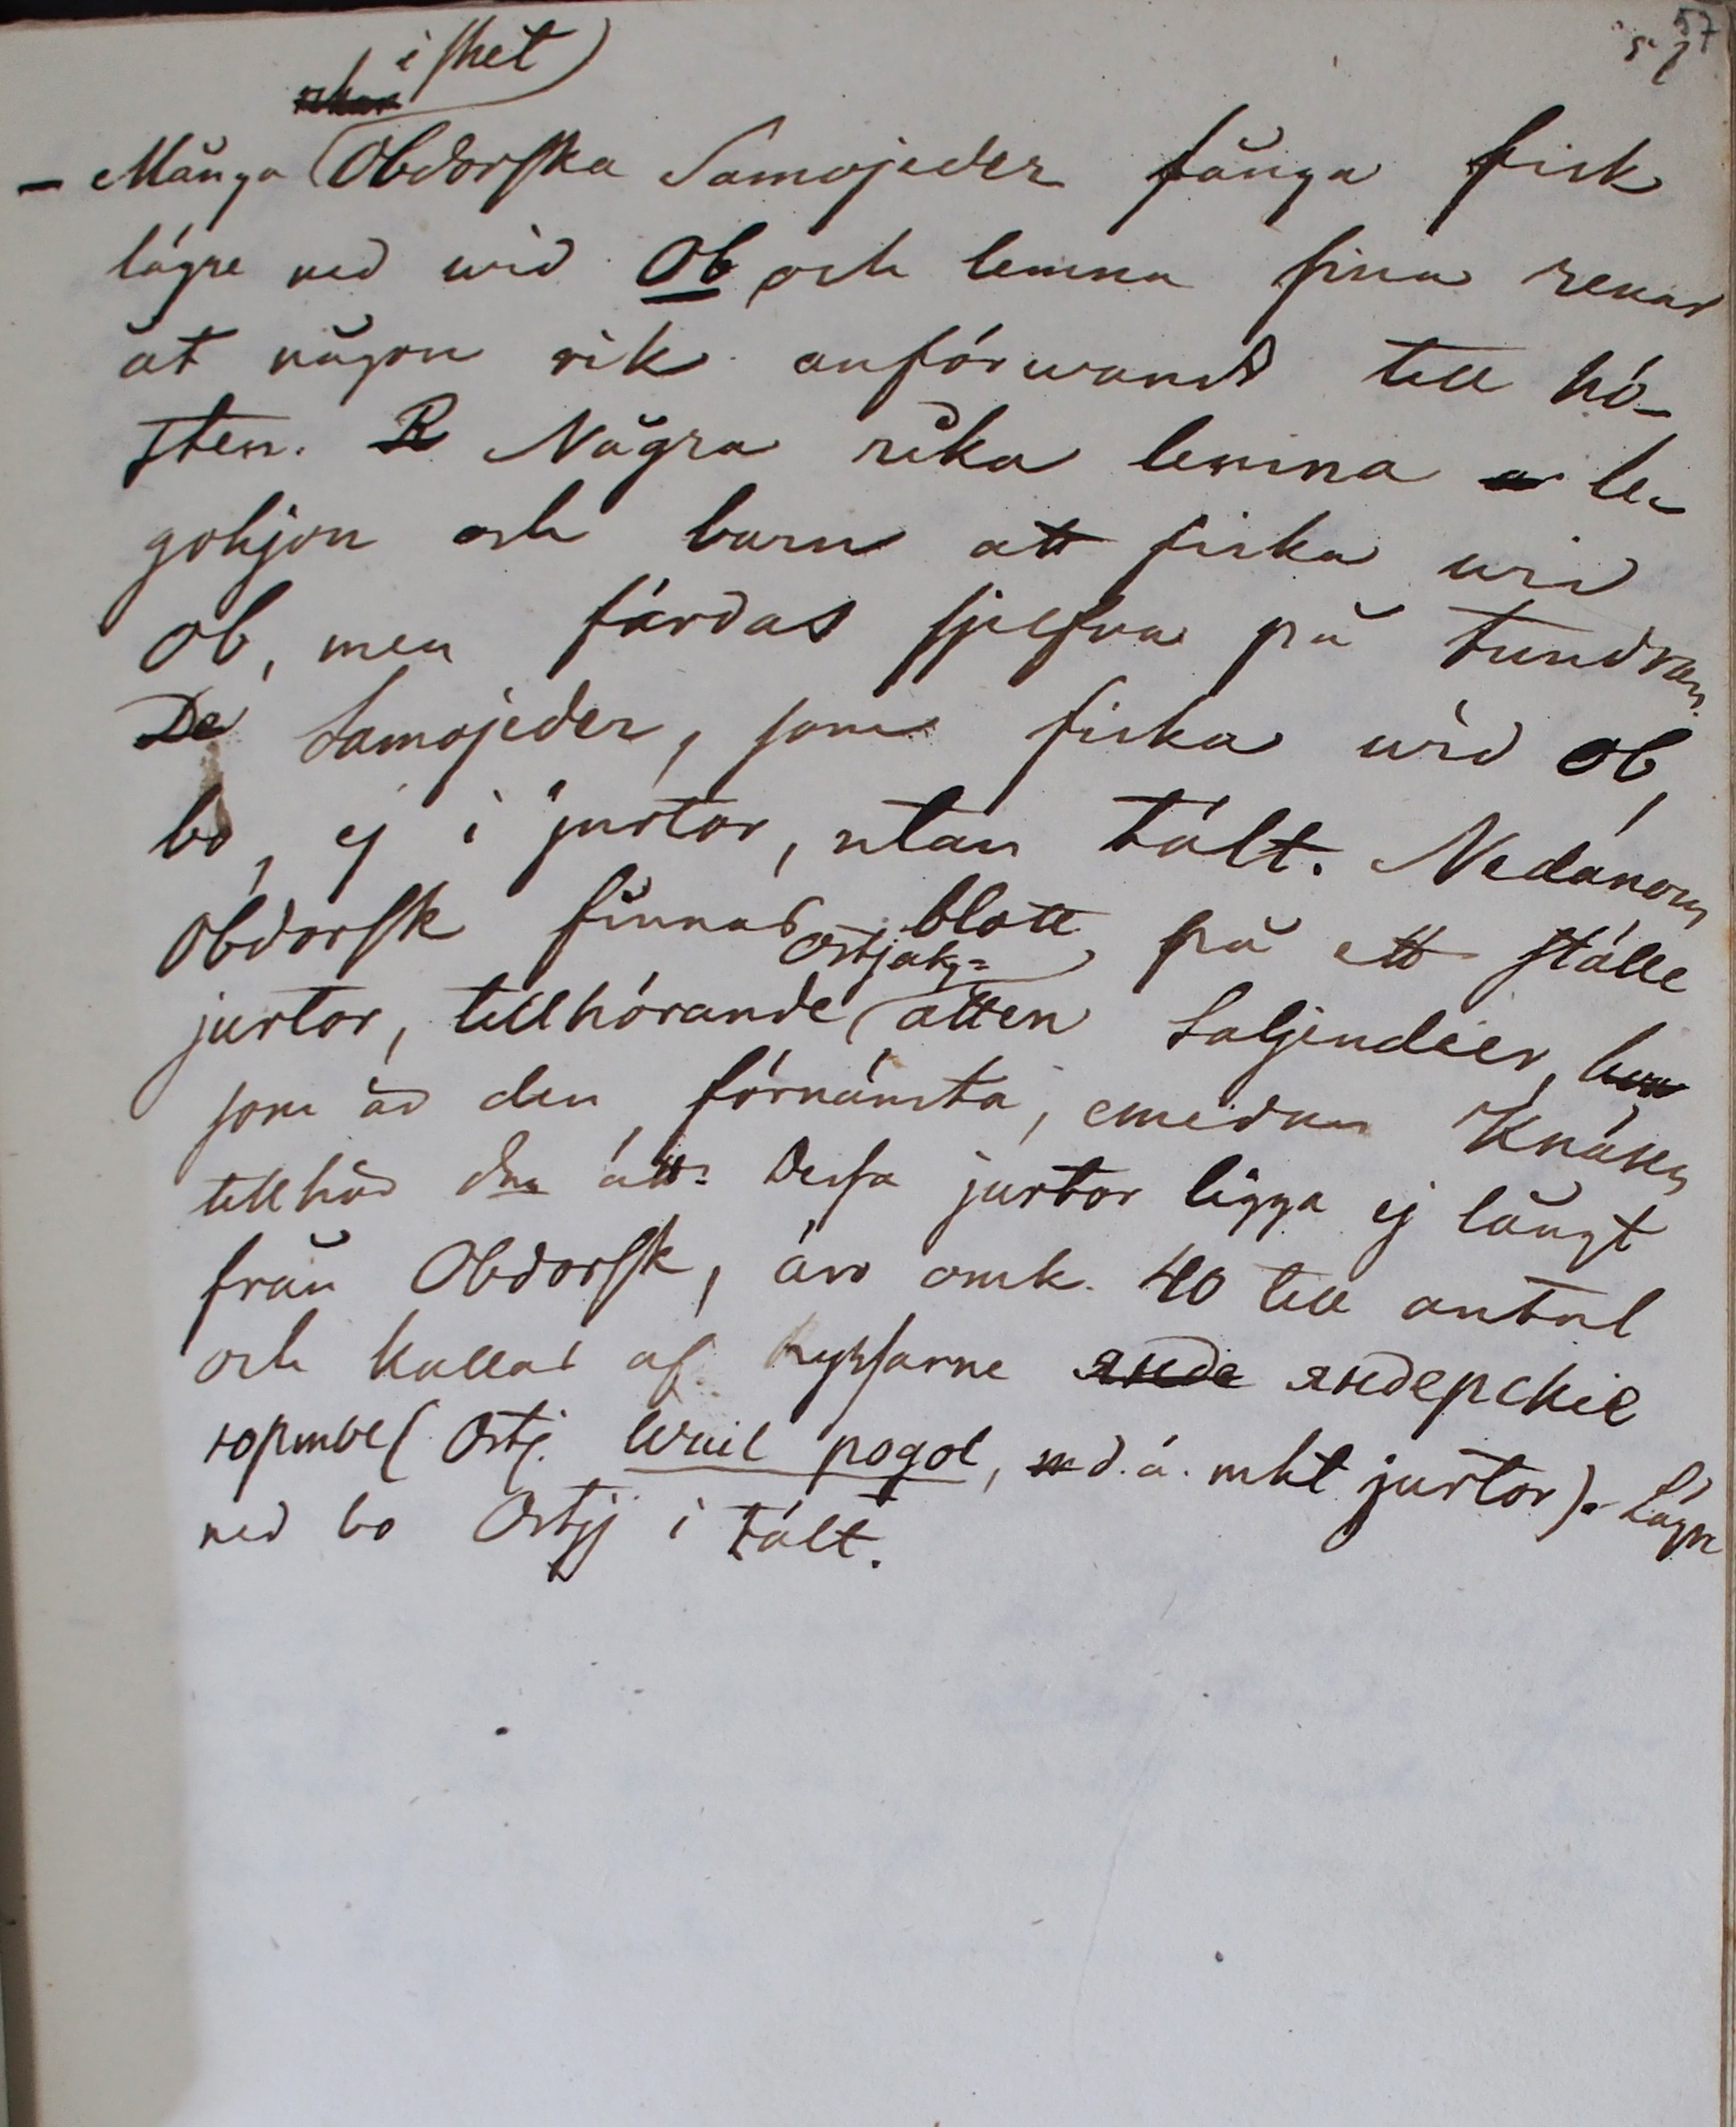 57
i shet)
– Många (Obdorska Samojeder fånga fisk
lägre ned wid Ob och lemna sina renar
åt någon rik anförwandt till hö-
sten. R Några rika lemna a le-
gohjon och barn att fiska wid
Ob, men färdas sjelfva på tundran.
De Samojeder, som fiska wid Ob,
bo, ej i jurtor, utan tält. Nedanom
Obdorsk finnas blott på ett ställe
Ostjak-
jurtor, tillhörande (ätten
som är den förnämsta, emedan Knäsen
tillhör den ätt. Dessa jurtor ligga ej långt
från Obdorsk, äro omk. 40 till antal
och kallas af Ryssarne янде яндерскіе
юрты (Ostj. pogol, d.ä. jurtor). – Lägre
ned bo Ostjj i tält.